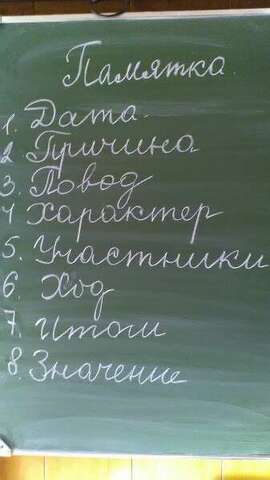 Памятка.
1. Дата.
2 Причина
3. Повод
4 Характер
5. Участники
6. Ход
7. Итоги
8. Значение